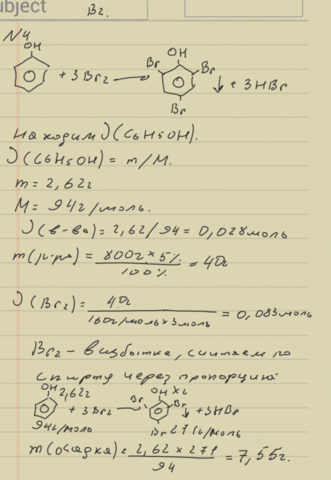 ubject
Br.
N4
OH
+ 3Br₂ → Br OH Br Br ↓ + 3HBr
Находим ν(C6H5OH).
ν(C6H5OH) = m/M.
m = 2,62г
M = 94г/моль.
ν(в-ва) = 2,62/94 = 0,028моль
m(р-ра) = 800г×5% / 100% = 40г
ν(Br₂) = 40г / 160г/моль×3моль = 0,083моль
Br₂ – в избытке, считаем по
спирту через пропорцию
OH 2,62г + 3Br₂ → Br OH xг Br Br ↓ + 3HBr
94г/моль 271г/моль
m(осадка) = 2,62 × 271 / 94 = 7,55г.